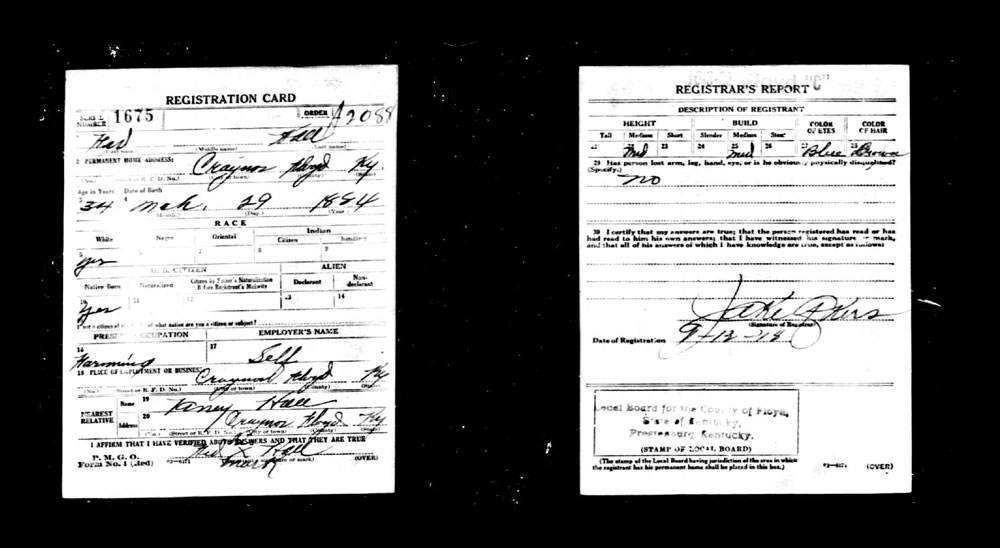 REGISTRATION CARD
SERIAL NUMBER 1675 ORDER A2088
Hall
(Middle name) (Last name)
2 PERMANENT HOME ADDRESS: Craynor Floyd Ky.
R. F. D. No.) (County) (State)
Age in Years Date of Birth
34 Mch. 29 1884
(Month.) (Day.) (Year.)
RACE
White Negro Oriental Indian
Citizen
5 7 8 9
yes
U. S. CITIZEN ALIEN
Native Born Naturalized Citizen by Father's Naturalization Before Registrant's Majority Declarant Non-declarant
10 11 12 13 14
Yes
of what nation are you a citizen or subject?
PRESENT OCCUPATION EMPLOYER'S NAME
16 17
Farming Self
18 PLACE OF EMPLOYMENT OR BUSINESS:
Craynor Floyd Ky
(No.) (Street or R. F. D. No.) (City or town) (County) (State)
NEAREST RELATIVE Name 19 Hall
Address 20 Craynor Floyd Ky
(No.) (Street or R. F. D. No.) (City or town) (County) (State)
I AFFIRM THAT I HAVE VERIFIED ABOVE ANSWERS AND THAT THEY ARE TRUE
P. M. G. O.
Form No. 1 (Red) 03-6171 X Hall (OVER)
mark
REGISTRAR'S REPORT
DESCRIPTION OF REGISTRANT
HEIGHT BUILD COLOR OF EYES COLOR OF HAIR
Tall Medium Short Slender Medium Stout
21 22 23 24 25 26 27 28
Med Med Blue Brown
29 Has person lost arm, leg, hand, eye, or is he obviously physically disqualified?
(Specify.)
no
30 I certify that my answers are true; that the person registered has read or has
had read to him his own answers; that I have witnessed his signature or mark,
and that all of his answers of which I have knowledge are true, except as follows:
Jake Akers
(Signature of Registrar)
Date of Registration 9-12-18
Local Board for the County of Floyd,
State of Kentucky,
Prestonsburg, Kentucky.
(STAMP OF LOCAL BOARD)
(The stamp of the Local Board having jurisdiction of the area in which
the registrant has his permanent home shall be placed in this box.)
03-6171 (OVER)